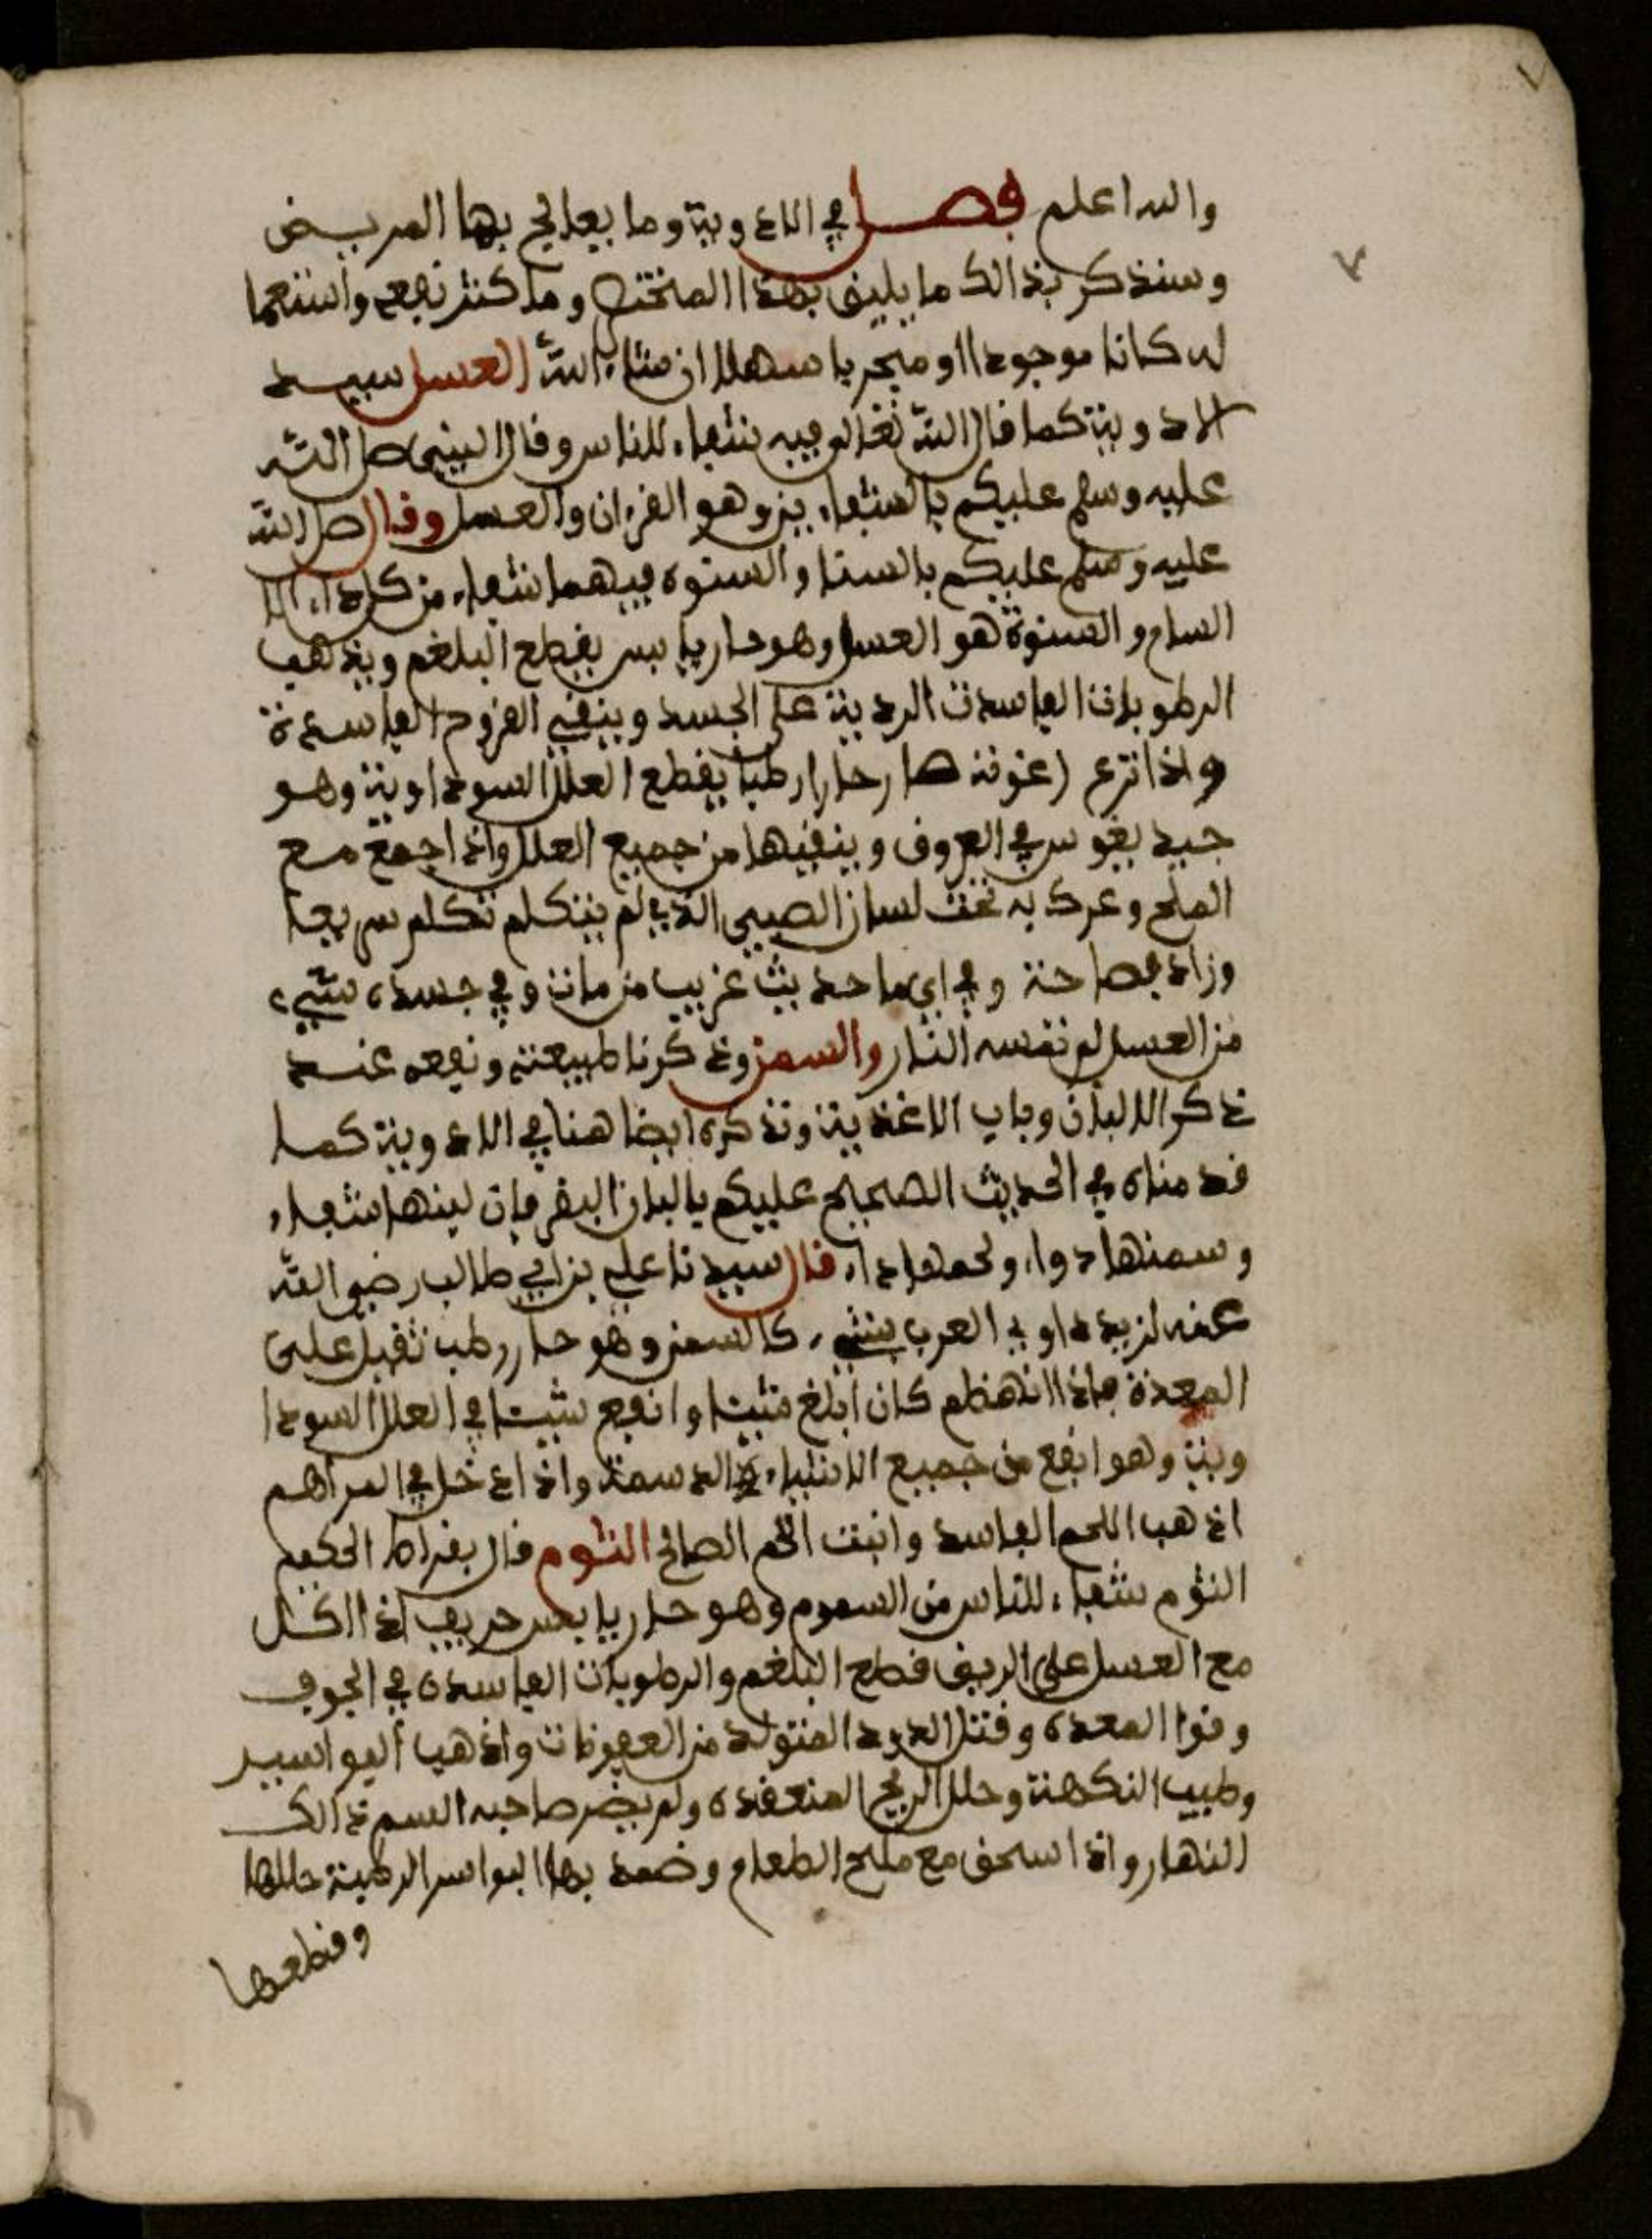 والله اعلم فصل في الادوية وما يعالج بها المريض
وسنذكر بذالك ما يليق بهذا المختصر وما كثر نفعه واستعما
له كانا موجودا او ميجربا سهلا ان شاء الله العسل سيد
الادوية كما قال الله تعالى فيه شفاء للناس وقال النبي صلى الله
عليه وسلم عليكم بالشفاءين وهو القرءان والعسل وقال صلى الله
عليه وسلم عليكم بالسنا والسنوة فيهما شفاء من كل داء الا
السام والسنوة هو العسل وهو حار يابس يقطع البلغم ويذهب
الرطوبات الفاسدت الردية على الجسد وينقي القروح الفاسدة
واذا نزع رغوته صار حارا رطبا يقطع العلل السوداوية وهو
جيد يغوس في العروق وينقيها من جميع العلل واذا جمع مع
الملح وعرك به تحت لسان الصبي الذي لم يتكلم تكلم سريعا
وزاد فصاحة وفي اي ما حديث غريب من مات وفي جسده شيء
من العسل لم تمسه النار والسمن وذكرنا طبيعته ونفعه عند
ذكر الالبان وباب الاغذية ونذكره ايضا هنا في الادوية كما
قدمناه في الحديث الصحيح عليكم بالبان البقر فان لبنها شفاء
وسمنها دواء ولحمها داء قال سيدنا علي بن ابي طالب رضي الله
عنه لم يداوى العرب بشيء كالسمن وهو حار رطب ثقيل على
المعدة فاذا انهظم كان ابلغ شيئا وانفع شيئا في العلل السودا
وية وهو انفع من جميع الاشياء الدسمة واذا دخل في المراهم
اذهب اللحم الفاسد وانبت الحم الصالح الثوم قال بقراط الحكيم
الثوم شفاء للناس من السموم وهو حار يابس حريف اذا اكل
مع العسل على الريق قطع البلغم والرطوبات الفاسدة في الجوف
وقوا المعدة وقتل الدود المتولد من العفونات واذهب البواسير
وطيب النكهة وحلل الريح المنعقدة ولم يضر صاحبه السم ذالك
النهار واذا سحق مع ملح الطعام وضمد بها البواسر الرطبة حللها
وقطعها